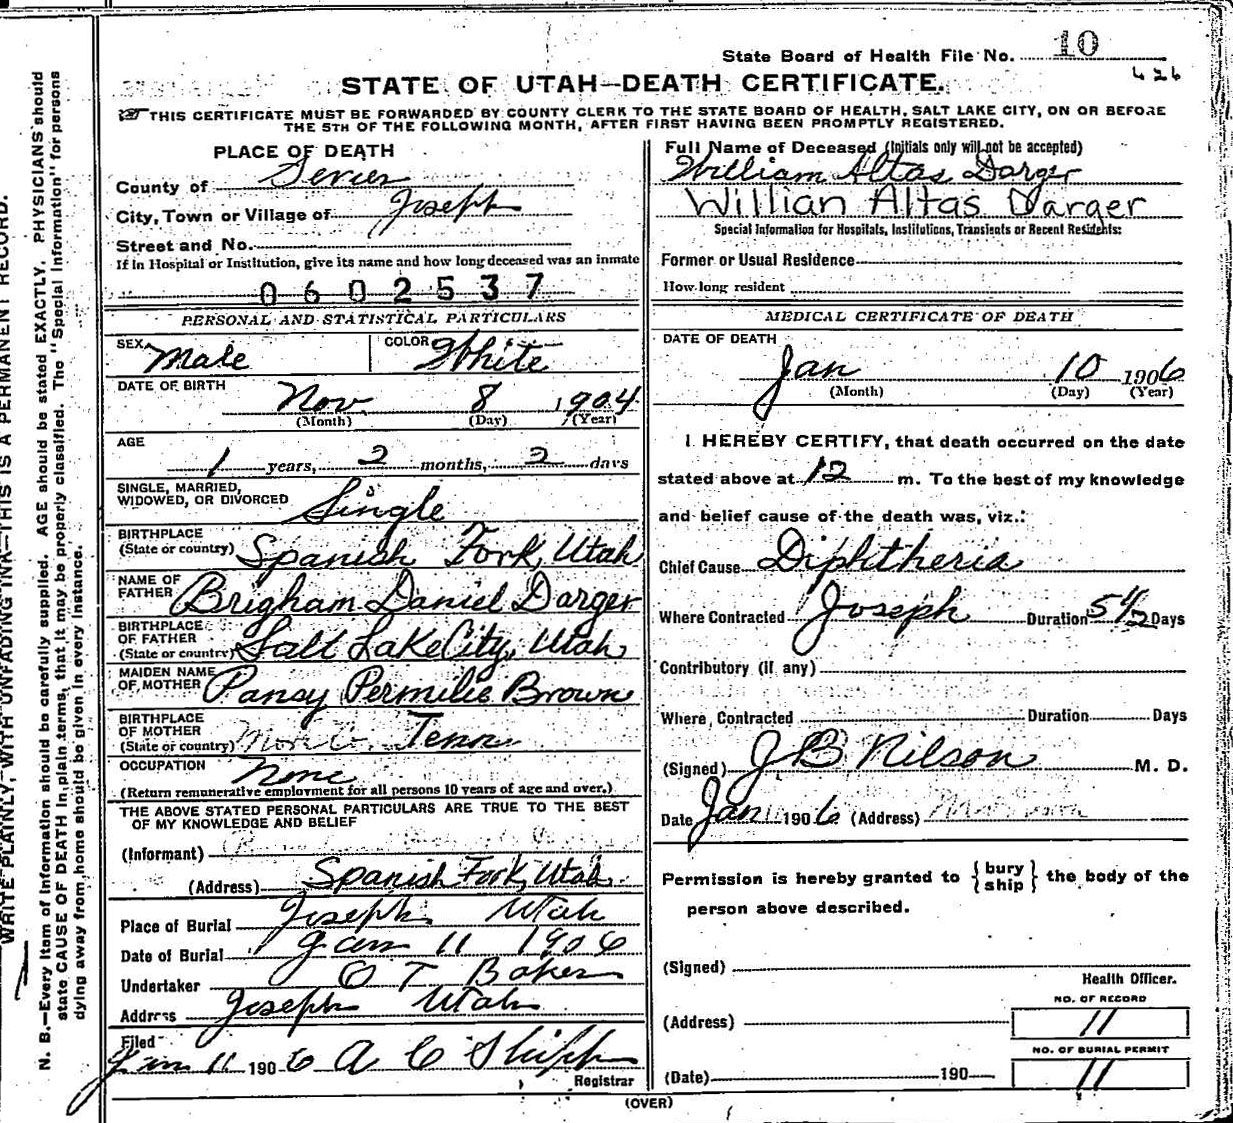 State Board of Health File No. 10
426
STATE OF UTAH—DEATH CERTIFICATE.
THIS CERTIFICATE MUST BE FORWARDED BY COUNTY CLERK TO THE STATE BOARD OF HEALTH, SALT LAKE CITY, ON OR BEFORE
THE 5TH OF THE FOLLOWING MONTH, AFTER FIRST HAVING BEEN PROMPTLY REGISTERED.
PLACE OF DEATH
County of Sevier
City, Town or Village of Joseph
Street and No.
If in Hospital or Institution, give its name and how long deceased was an inmate
0602537
PERSONAL AND STATISTICAL PARTICULARS
SEX Male COLOR White
DATE OF BIRTH
Nov 8 1904
(Month) (Day) (Year)
AGE
1 years, 2 months, 2 days
SINGLE, MARRIED,
WIDOWED, OR DIVORCED Single
BIRTHPLACE
(State or country) Spanish Fork, Utah
NAME OF
FATHER Brigham Daniel Darger
BIRTHPLACE
OF FATHER
(State or country) Salt Lake City, Utah
MAIDEN NAME
OF MOTHER Pansy Permilie Brown
BIRTHPLACE
OF MOTHER
(State or country) Tenn
OCCUPATION None
(Return remunerative employment for all persons 10 years of age and over.)
THE ABOVE STATED PERSONAL PARTICULARS ARE TRUE TO THE BEST
OF MY KNOWLEDGE AND BELIEF
(Informant)
(Address) Spanish Fork, Utah
Place of Burial Joseph Utah
Date of Burial Jan 11 1906
Undertaker O T Baker
Address Joseph Utah
Filed
Jan 11 1906 A C Shipp
Registrar
Full Name of Deceased (Initials only will not be accepted)
William Altas Darger
Willian Altas Darger
Special Information for Hospitals, Institutions, Transients or Recent Residents:
Former or Usual Residence
How long resident
MEDICAL CERTIFICATE OF DEATH
DATE OF DEATH
Jan 10 1906
(Month) (Day) (Year)
I HEREBY CERTIFY, that death occurred on the date
stated above at 12 m. To the best of my knowledge
and belief cause of the death was, viz.:
Chief Cause Diphtheria
Where Contracted Joseph Duration 5 1/2 Days
Contributory (if any)
Where Contracted Duration Days
(Signed) J B Nilson M. D.
Date Jan 11 1906 (Address)
Permission is hereby granted to {bury ship} the body of the
person above described.
(Signed)
Health Officer.
NO. OF RECORD
(Address) 11
NO. OF BURIAL PERMIT
(Date) 190 11
(OVER)
WRITE PLAINLY, WITH UNFADING INK—THIS IS A PERMANENT RECORD.
N. B.—Every item of information should be carefully supplied. AGE should be stated EXACTLY. PHYSICIANS should
state CAUSE OF DEATH in plain terms, that it may be properly classified. The "Special Information" for persons
dying away from home should be given in every instance.